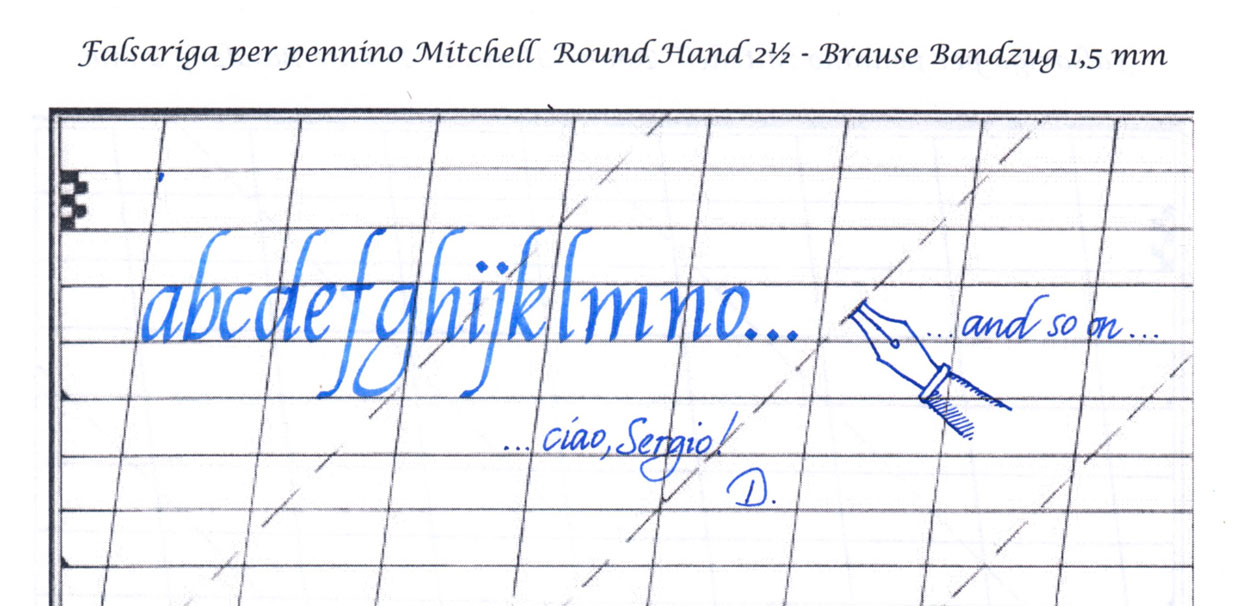 Falsariga per pennino Mitchell Round Hand 2½ - Brause Bandzug 1,5 mm
abcdefghijklmno...
...and so on...
...ciao, Sergio!
D.